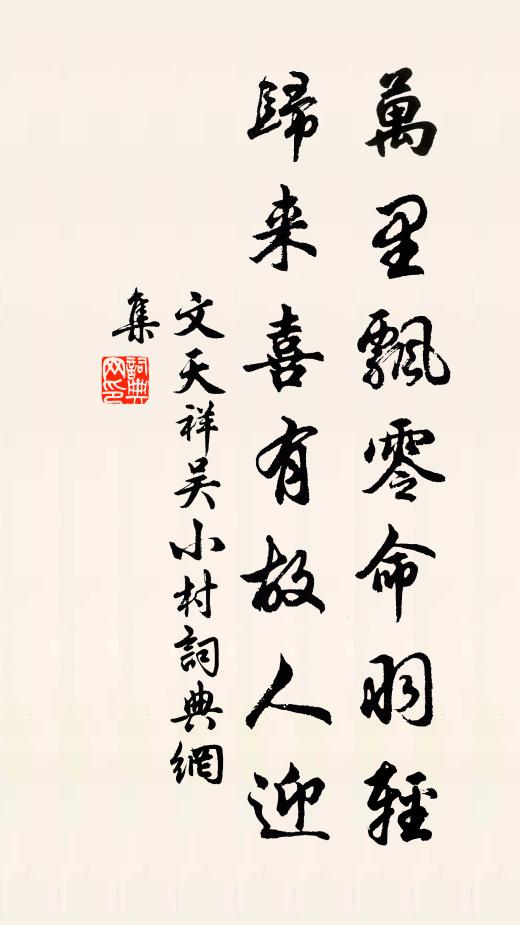 萬里飄零命羽輕
歸来喜有故人迎
文天祥吴小村詞典網
集
詞典網印